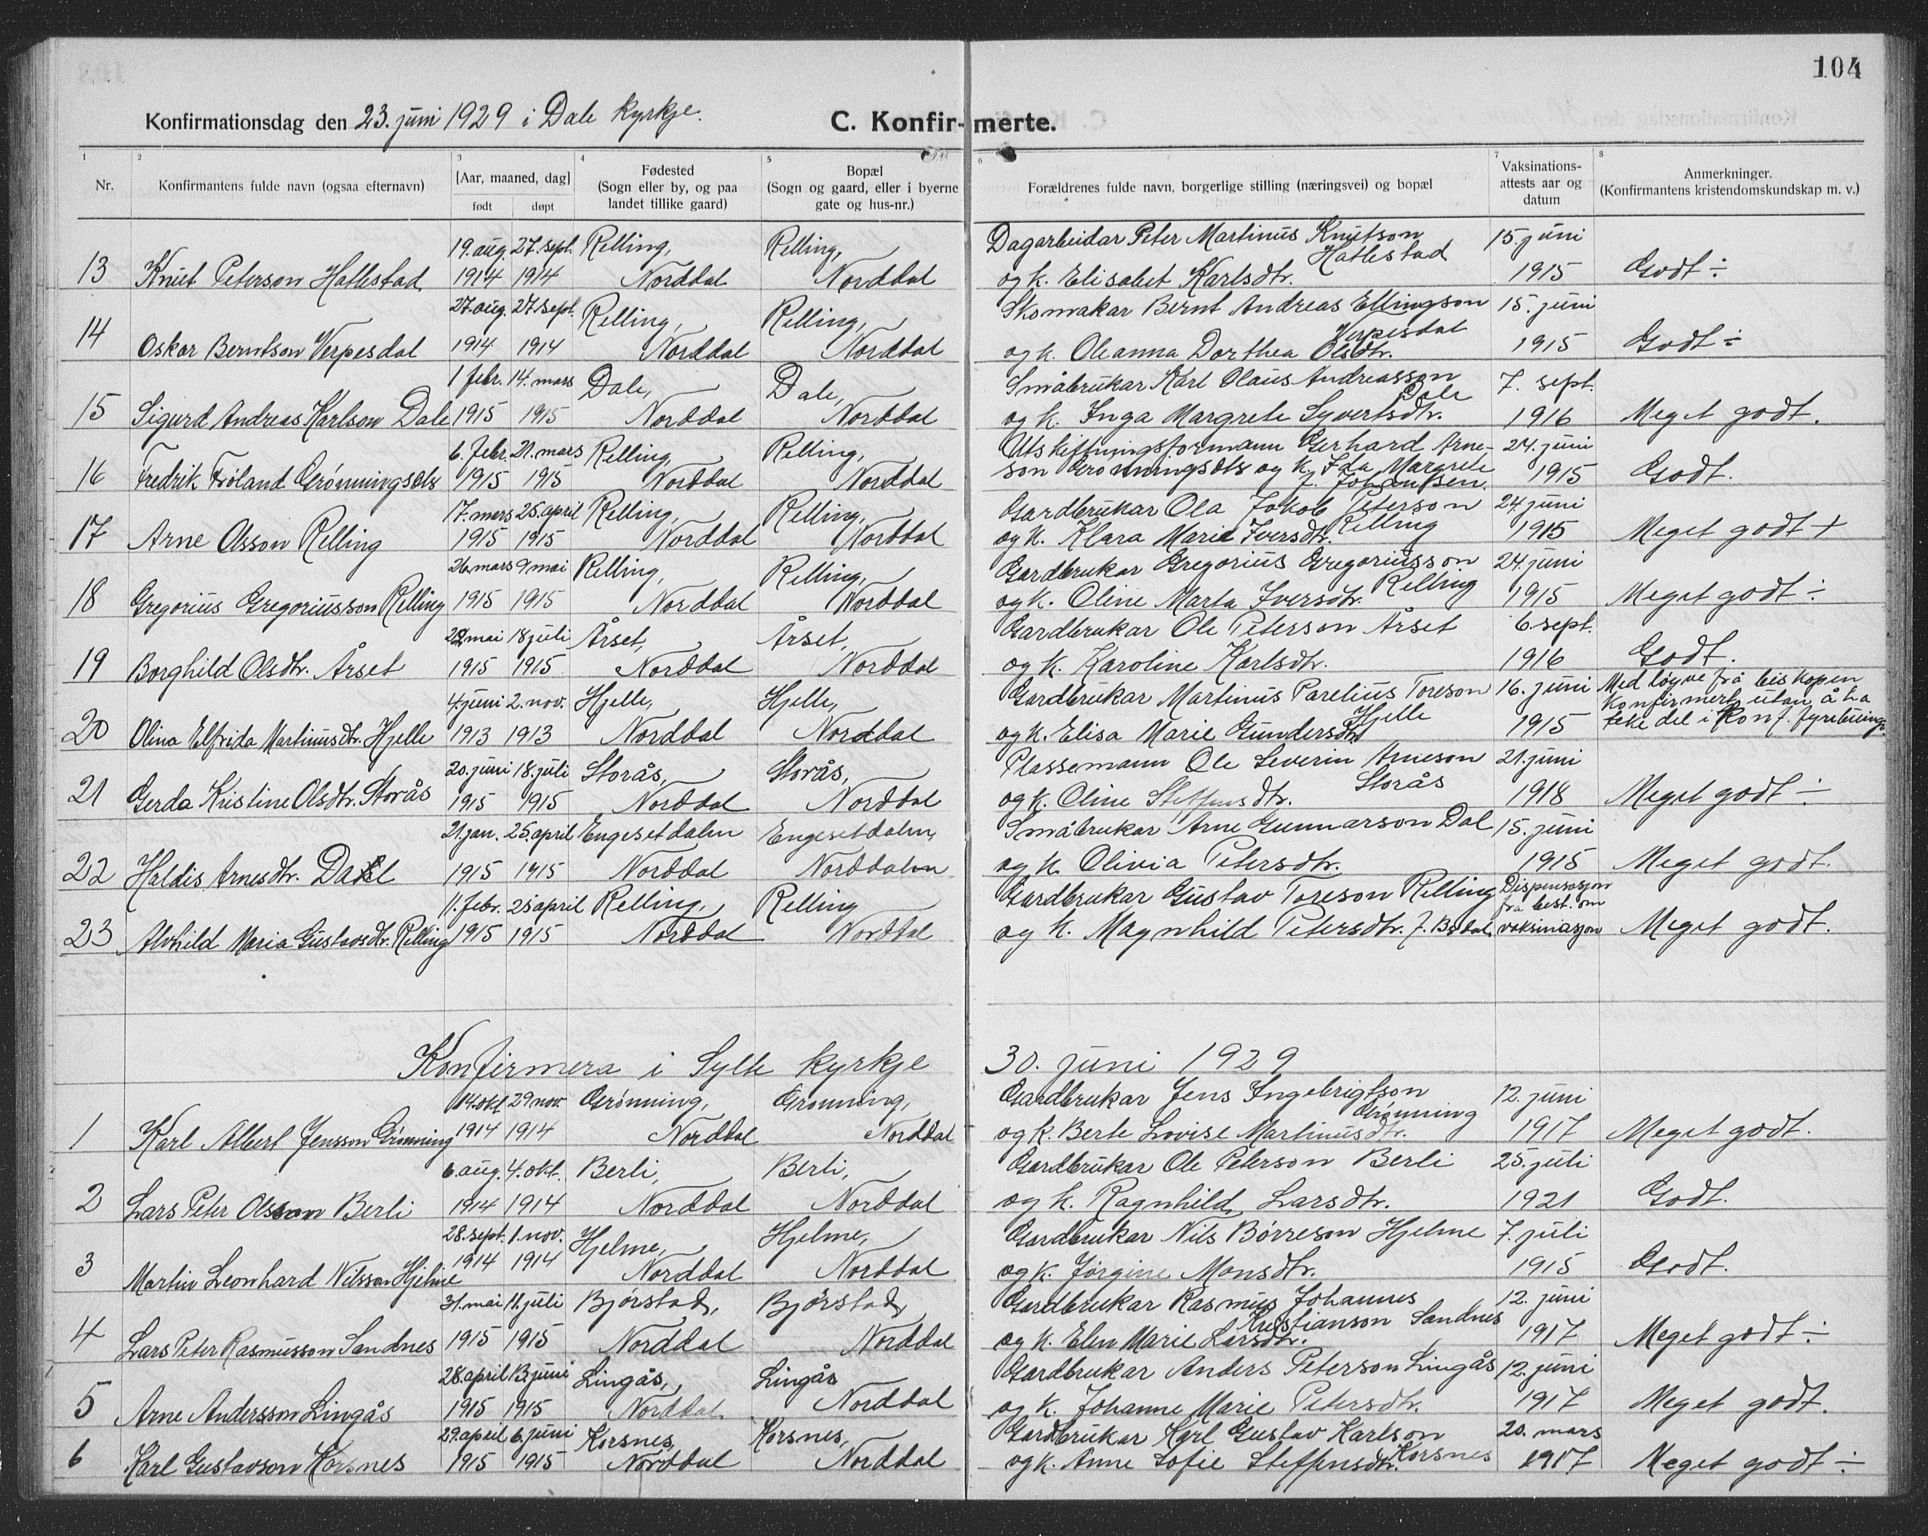 104
Konfirmationsdag den 23. juni 1929 i Dale kyrkje.
C. Konfir-merte.
1 2 3 4 5 6 7 8
Nr.
Konfirmantens fulde navn (ogsaa efternavn)
[Aar, maaned, dag]
født døpt
Fødested
(Sogn eller by, og paa
landet tillike gaard)
Bopæl
(Sogn og gaard, eller i byerne
gate og hus-nr.)
Forældrenes fulde navn, borgerlige stilling (næringsvei) og bopæl
Vaksinations-
attests aar og
datum
Anmerkninger.
(Konfirmantens kristendomskundskap m. v.)
19. aug. 27. sept. Relling, Relling, Dagarbeidar Peter Martinus Knutson 15. juni
Hatlestad
13 Knut Peterson Hatlestad 1914 1914 Norddal Norddal og k. Elisabet Karlsdtr. 1915 Godt ÷
27. aug. 27. sept. Relling, Relling, Skomakar Bernt Andreas Ellingson 15. juni
Verpesdal
14 Oskar Berntson Verpesdal 1914 1914 Norddal Norddal og k. Oleanna Dorthea Olsdtr. 1915 Godt ÷
1 febr. 14. mars Dale, Dale, Småbrukar Karl Olaus Andreasson 7. sept.
Dale
15 Sigurd Andreas Karlson Dale 1915 1915 Norddal Norddal og k. Inga Margrete Syvertsdtr. 1916 Meget godt.
6. febr. 21. mars Relling, Relling, Utskiftningsformann Gerhard Arne- 24. juni
16 Fredrik Frøland Grønningsæter 1915 1915 Norddal Norddal son Grønningsæter og k. Ida Margrete 1915 Godt.
f. Johansen.
17. mars 25. april Relling, Relling, Gardbrukar Ola Jakob Peterson 24. juni
Relling
17 Arne Olsson Relling 1915 1915 Norddal Norddal og k. Klara Marie Iversdtr. 1915 Meget godt +
26. mars 9 mai Relling, Relling, Gardbrukar Gregorius Gregoriusson 24. juni
Relling
18 Gregorius Gregoriusson Relling 1915 1915 Norddal Norddal og k. Oline Marta Iversdtr. 1915 Meget godt ÷
mai 18 juli Årset, Årset, Gardbrukar Ole Peterson Årset 6. sept.
19 Borghild Olsdtr. Årset 1915 1915 Norddal Norddal og k. Karoline Karlsdtr. 1916 Godt.
4. juni 2. nov. Hjelle, Hjelle, Gardbrukar Martinus Parelius Toreson 16. juni Med løyve frå biskopen
Hjelle konfirmert utan å ha
20 Olina Elfrida Martinusdtr. Hjelle 1913 1913 Norddal Norddal og k. Elisa Marie Gundersdtr. 1915 teke del i konf. fyrebuing.
20. juni 18. juli Storås, Storås, Plassemann Ole Severin Arneson 21. juni
Storås
21 Gerda Kristine Olsdtr. Storås 1915 1915 Norddal Norddal og k. Oline Steffensdtr. 1918 Meget godt ÷
21. jan. 25. april Engesetdalen Engesetdalen, Småbrukar Arne Gunnarson Dal 15. juni
22 Haldis Arnesdtr. Dal 1915 1915 Norddal Norddalen og k. Olivia Petersdtr. 1915 Meget godt.
11. febr. 25 april Relling, Relling Gardbrukar Gustav Toreson Relling Dispensasjon
frå best. om
23 Alvhild Maria Gustavsdtr. Relling 1915 1915 Norddal Norddal og k. Magnhild Petersdtr. f. Bødal. vaksinasjon Meget godt.
Konfirmera i Sylte kyrkje 30. juni 1929
14. okt. 29 nov. Grønning, Grønning, Gardbrukar Jens Ingebrigtson 12. juni
Grønning
1 Karl Albert Jensson Grønning 1914 1914 Norddal Norddal og k. Berte Lovise Martinusdtr. 1917 Meget godt.
6. aug. 4. okt. Berli, Berli, Gardbrukar Ole Peterson Berli 25. juli
2 Lars Peter Olsson Berli 1914 1914 Norddal Norddal og k. Ragnhild Larsdtr. 1921 Godt.
28. sept. 1. nov. Hjelme, Hjelme, Gardbrukar Nils Børreson Hjelme 7. juli
3 Martin Leonhard Nilsson Hjelme 1914 1914 Norddal Norddal og k. Jørgine Monsdtr. 1915 Godt.
31. mai 11. juli Bjørstad, Bjørstad, Gardbrukar Rasmus Johannes 12. juni
Kristianson Sandnes
4 Lars Peter Rasmusson Sandnes 1915 1915 Norddal Norddal og k. Elen Marie Larsdtr. 1917 Meget godt ÷
28. april 13. juni Lingås, Lingås Gardbrukar Anders Peterson Lingås 12. juni
5 Arne Andersson Lingås 1915 1915 Norddal Norddal og k. Johanne Marie Petersdtr. 1917 Meget godt.
29. april 6. juni Korsnes, Korsnes, Gardbrukar Karl Gustav Karlson 20. mars
Korsnes
6 Karl Gustavson Korsnes 1915 1915 Norddal Norddal og k. Anne Sofie Steffensdtr. 1917 Meget godt ÷